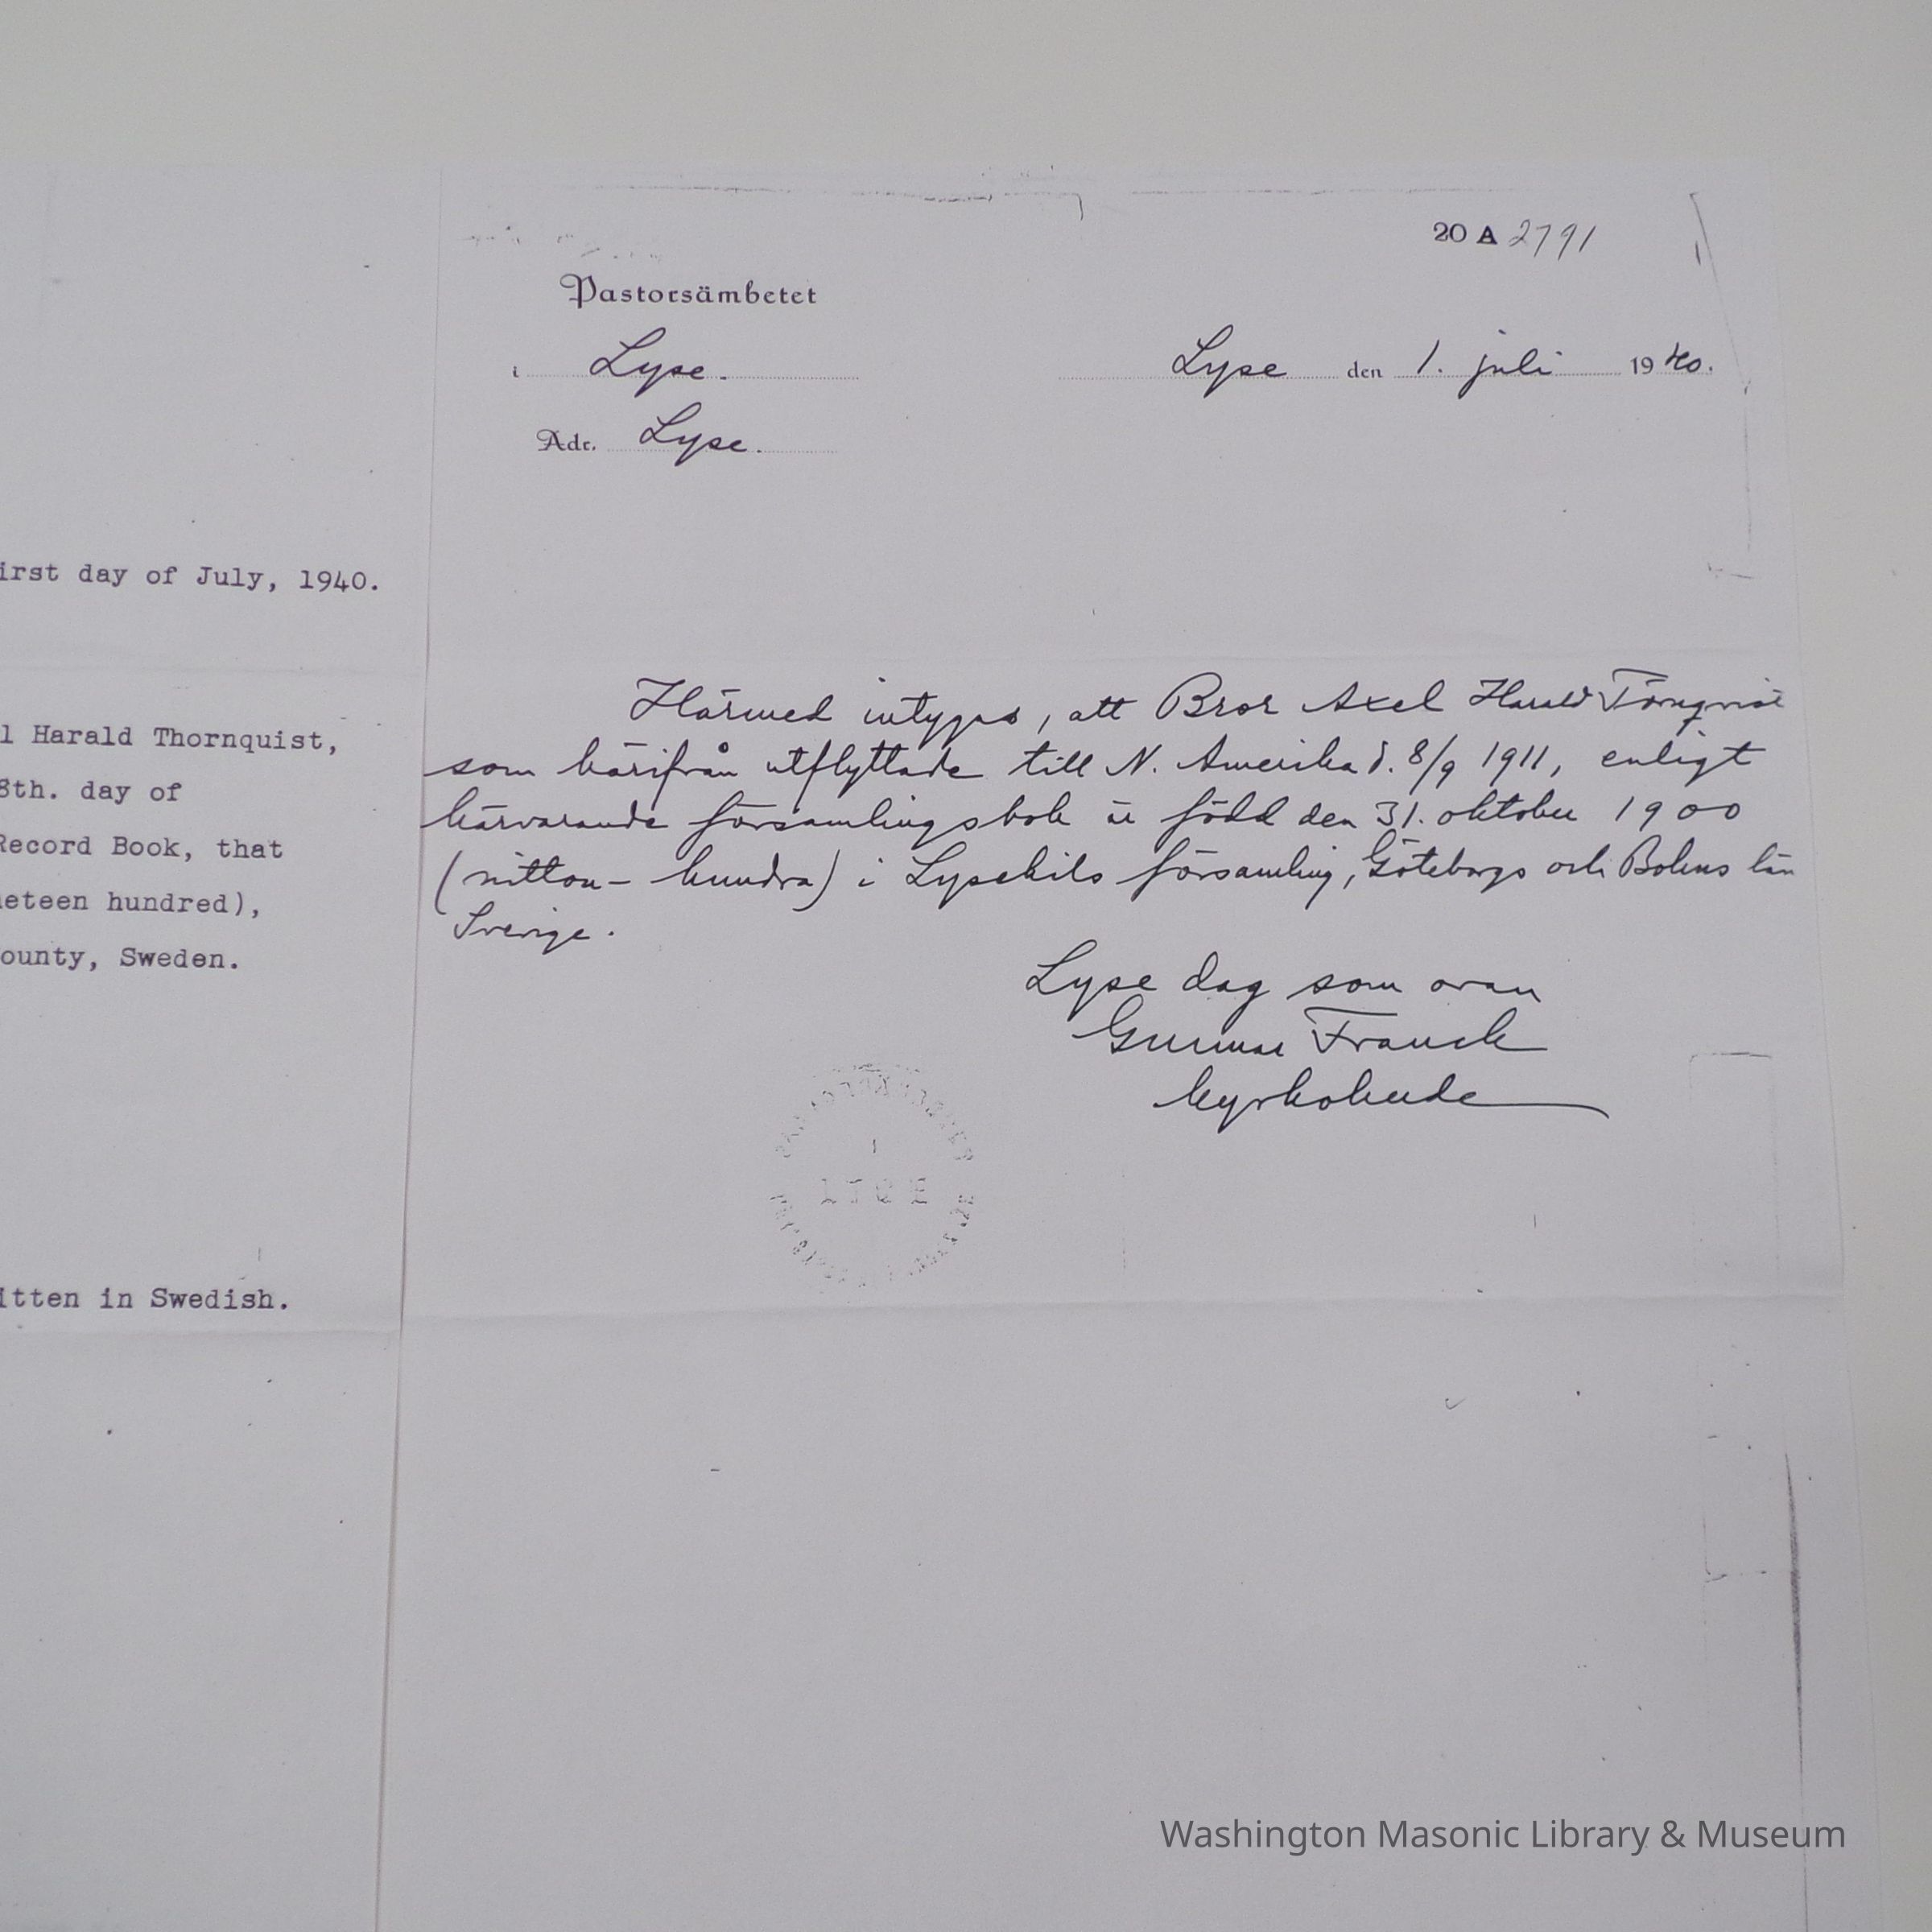 20 A 2791
Pastorsämbetet
i Lyse.
Lyse den 1. juli 1940.
Adr. Lyse.
irst day of July, 1940.
l Harald Thornquist,
8th. day of
Record Book, that
eteen hundred),
ounty, Sweden.
itten in Swedish.
Härmed intygas, att Bror Axel Harald Törnqvist
som härifrån utflyttade till N. Amerika d. 8/9 1911, enligt
härvarande församlingsbok är född den 31. oktober 1900
(nitton-hundra) i Lysekils församling, Göteborgs och Bohus län
Sverige.
Lyse dag som ovan
Gunnar Franck
kyrkoherde
I
LYSE
Washington Masonic Library & Museum